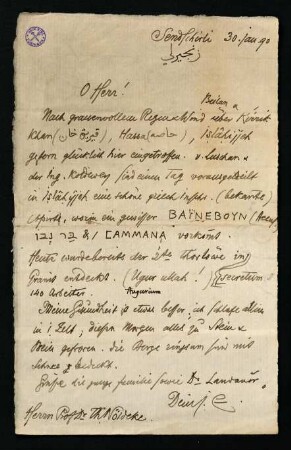 Sendschirli 30. Jan. 90
زنجيرلي
O Herr!
Nach grauenvollem Regen & Wind über Beilan &
Khan (قيريق خان), Hassa (حاصه), Islâhijjeh
gestern glücklich hier eingetroffen. v. Luschan &
der Ing. Koldewey sind einen Tag vorausgeeilt
in Islâhijjeh eine schöne griech Inschr. (bekannte)
worin ein gewisser ΒΑΪΝΕΒΟΥΝ (Accus.)
בר נבו & CAMMANA vorkommt.
Heute wurde bereits der 2te Thorlöwe in
Granit entdeckt (Ugur ullah!)
140 Arbeiter. Augurium
Meine Gesundheit ist etwas besser, ich schlafe allein
in 1. Zelt, diesen Morgen alles zu Stein &
Bein gefroren. die Berge ringsum sind mit
Schnee bedeckt.
Grüsse die ganze Familie sowie Dr Landauer
Dein J. E.
Herrn Prof. Dr Th Nöldeke.